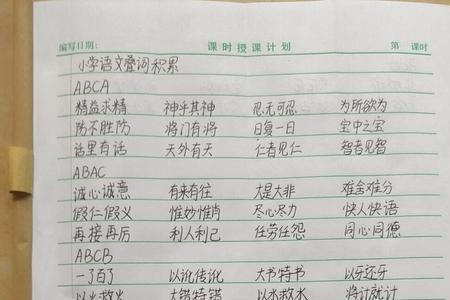 编写日期： 课时授课计划 第 课时
小学语文叠词积累
ABCA
精益求精 神乎其神 忍无可忍 为所欲为
防不胜防 将门有将 日复一日 宝中之宝
话里有话 天外有天 仁者见仁 智者见智
ABAC
诚心诚意 有来有往 大是大非 难舍难分
假仁假义 惟妙惟肖 尽心尽力 快人快语
再接再厉 利人利己 任劳任怨 同心同德
ABCB
一了百了 以讹传讹 大书特书 以牙还牙
以火救火 大错特错 以水救水 将计就计